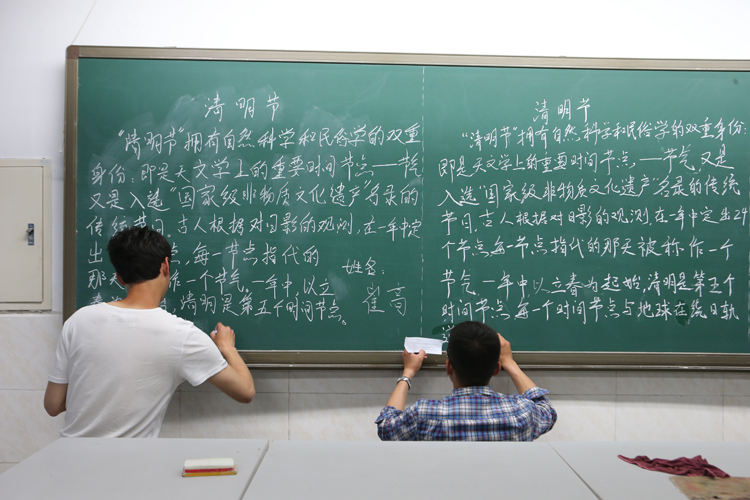 清明节
"清明节"拥有自然科学和民俗学的双重
身份:即是天文学上的重要时间节点一节气
又是入选"国家级非物质文化遗产"名录的
传统节日。古人根据对日影的观测,在一年中定
出 点,每一节点指代的
那天 作一个节气。一年中,以立
春 清明是第五个时间节点。
姓名:
崔
清明节
"清明节"拥有自然科学和民俗学的双重身份:
即是天文学上的重要时间节点,一节气,又是
入选"国家级非物质文化遗产"名录的传统
节日,古人根据对日影的观测,在一年中定出24
个节点,每一节点指代的那天被称作一个
节气,一年中以立春为起始,清明是第五个
时间节点,每一个时间节点与地球在绕日轨